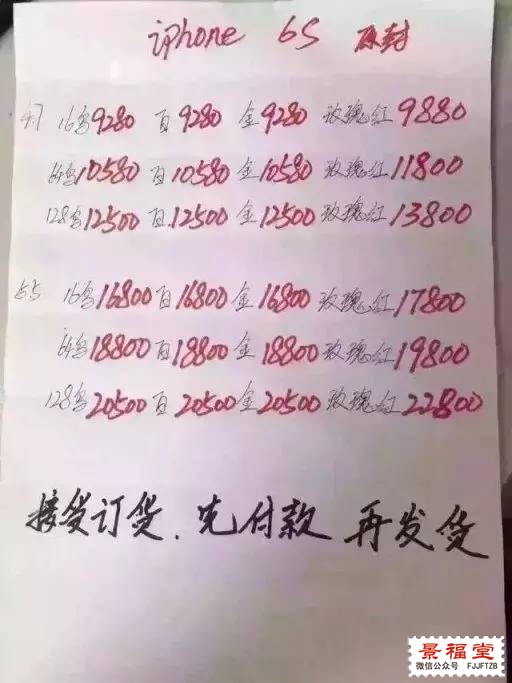 iphone 6S 原封
4.7 16黑9280 白9280 金9280 玫瑰红9880
64黑10580 白10580 金10580 玫瑰红11800
128黑12500 白12500 金12500 玫瑰红13800
5.5 16黑16800 白16800 金16800 玫瑰红17800
64黑18800 白18800 金18800 玫瑰红19800
128黑20500 白20500 金20500 玫瑰红22800
接受订货.先付款 再发货
景福堂
微信公众号 FJJFTZB